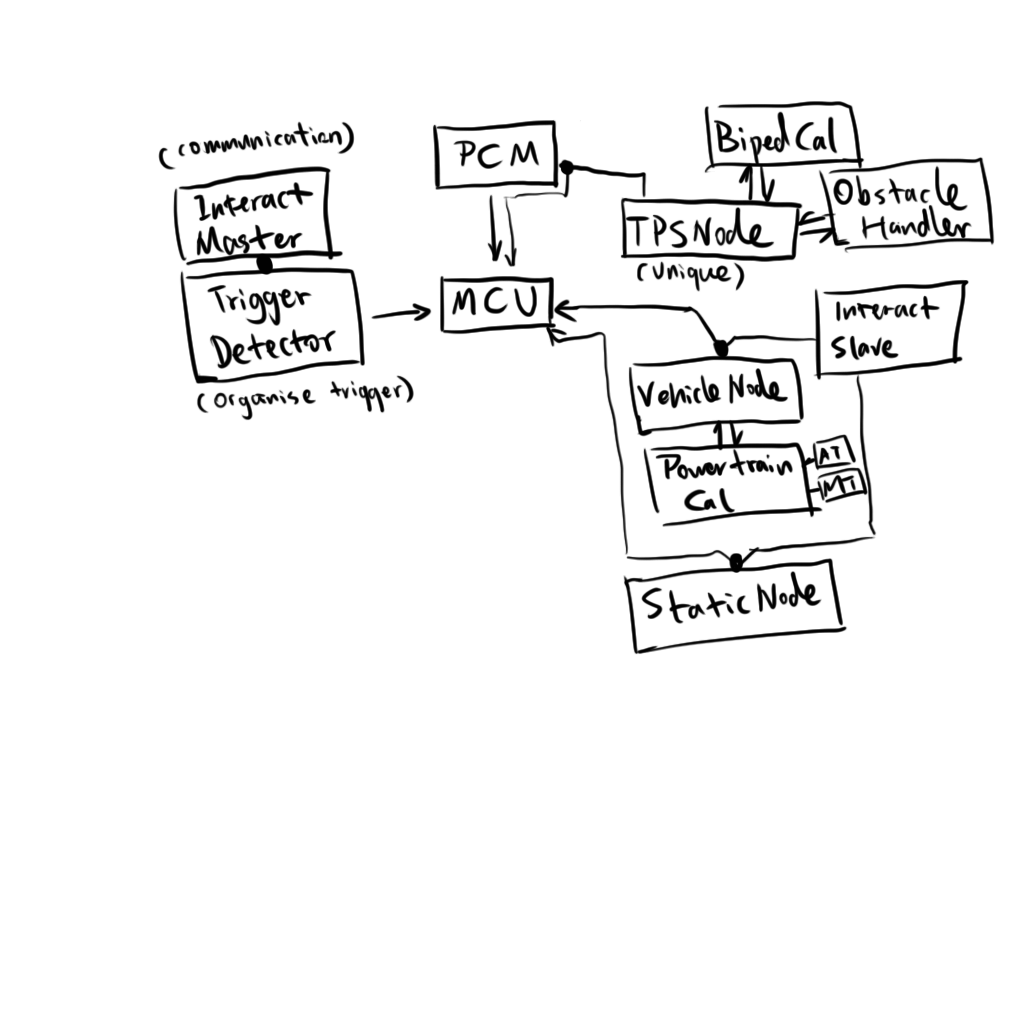 (communication)
Interact
Master
Trigger
Detector
(Organise trigger)
PCM
MCU
BipedCal
Obstacle
Handler
TPSNode
(Unique)
Interact
Slave
Vehicle Node
Powertrain
Cal
AT
MT
StaticNode